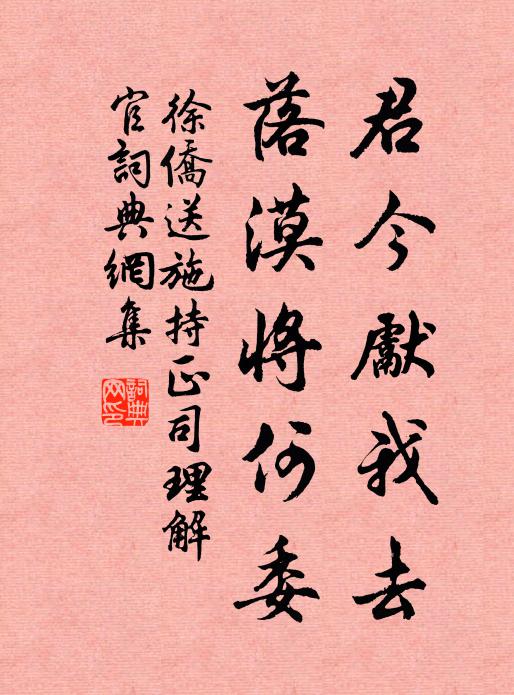 君今獻我去
落漠將何委
徐僑送施持正司理解
官詞典網集
詞典
网印